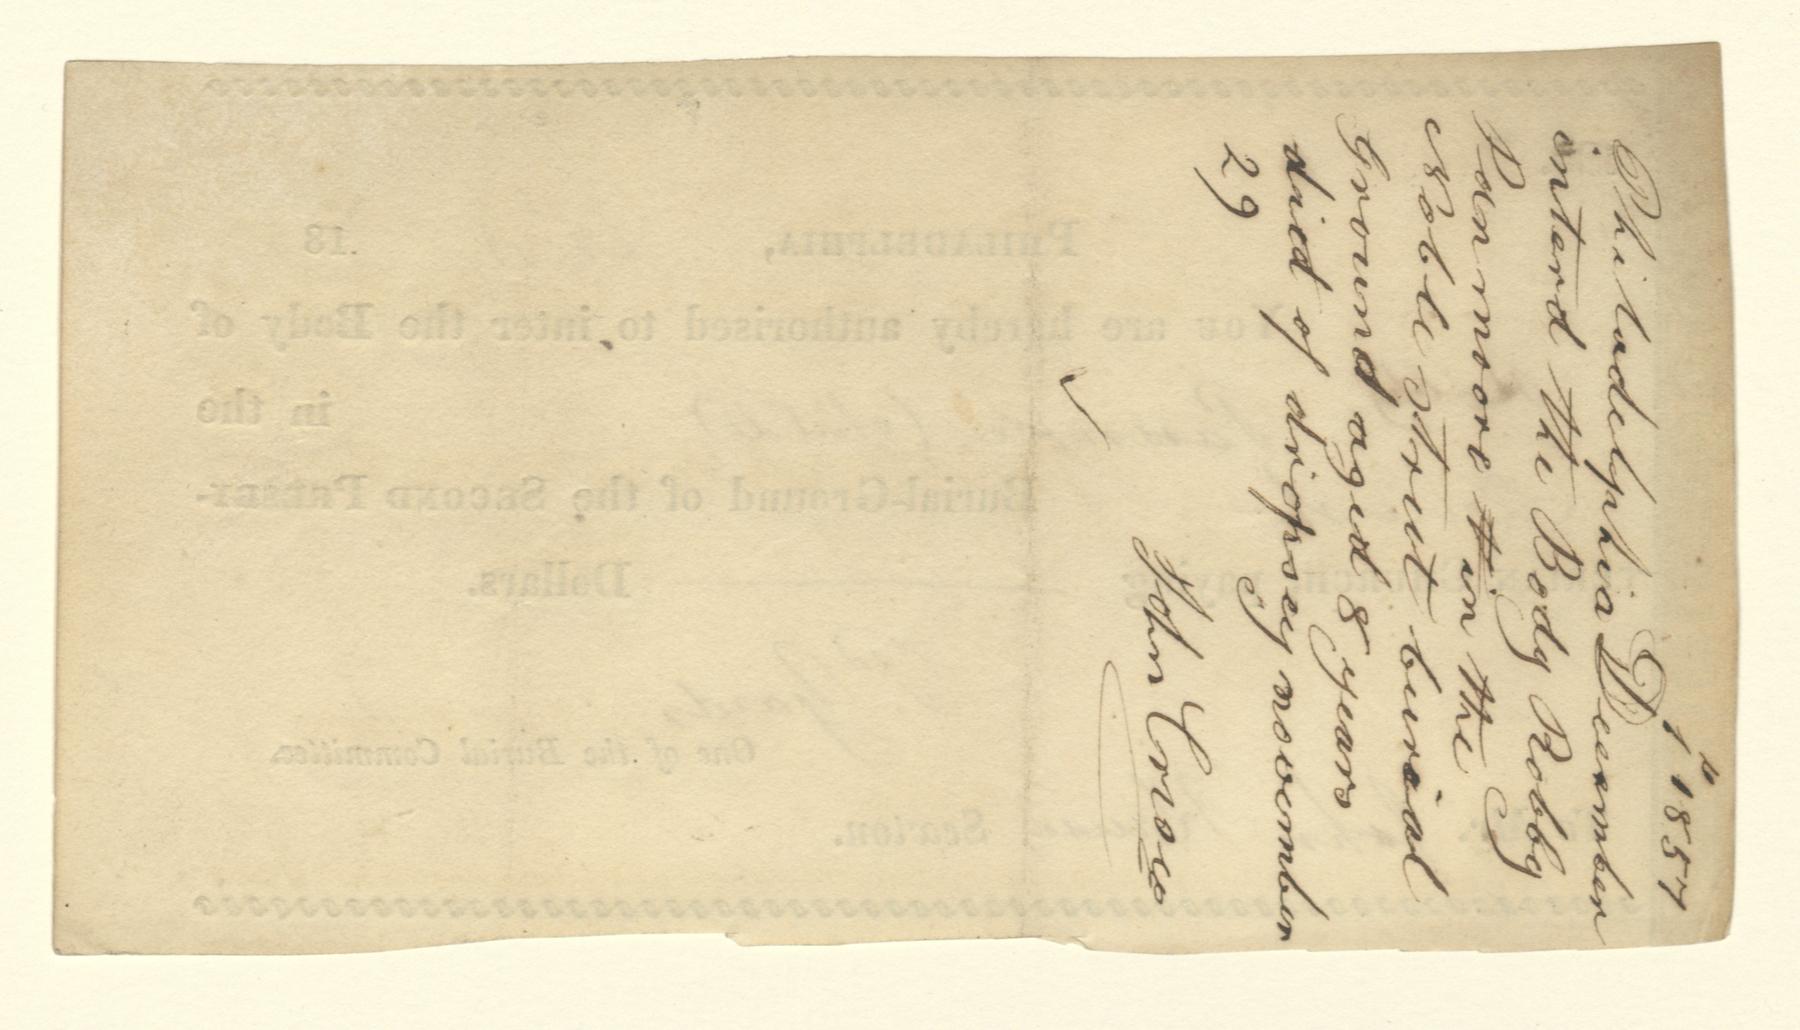 Philadelphia December
1 1857
interd the Body Robby
Panmoore in the
Noble street burial
Ground aged 8 years
died of dropsey november
29
John Cruse
PHILADELPHIA, 18
You are hereby authorised to inter the Body of
in the
Burial-Ground of the SECOND PRESBY-
paying Dollars.
One of the Burial Committee
Sexton.